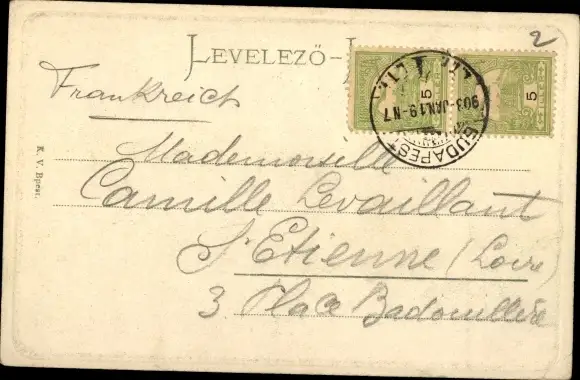 2
LEVELEZŐ-L
Frankreich
5
5
BUDAPEST
903 JAN. 19-N7
Mademoiselle
Camille Levaillant
St Etienne (Loire)
3 Place Badouillère
K. V. Bpest.